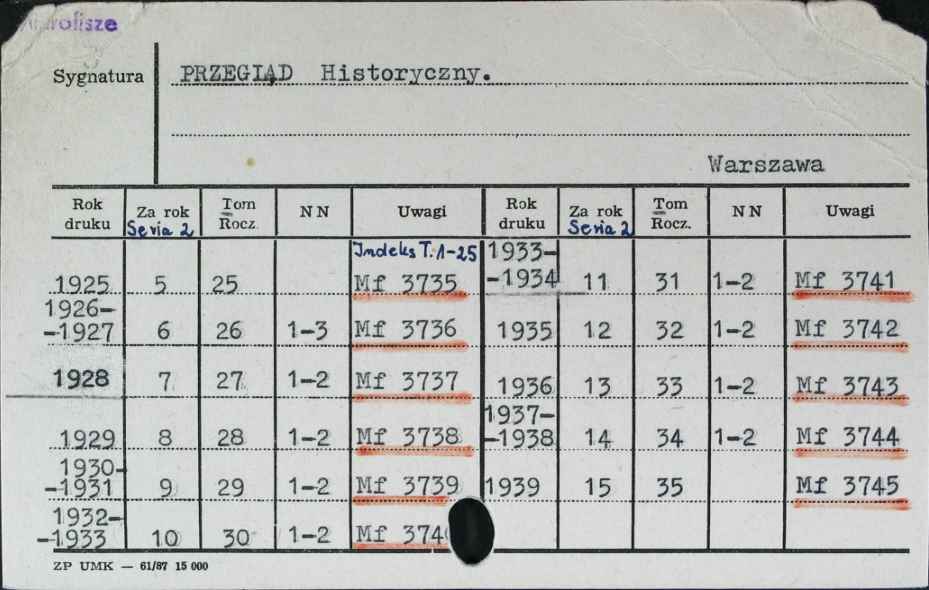 Sygnatura PRZEGLĄD Historyczny.
Warszawa
Rok druku Za rok Seria 2 Tom Rocz. NN Uwagi Rok druku Za rok Seria 2 Tom Rocz. NN Uwagi
1925 5 25 Indeks T. 1-25 Mf 3735 1933--1934 11 31 1-2 Mf 3741
1926--1927 6 26 1-3 Mf 3736 1935 12 32 1-2 Mf 3742
1928 7 27 1-2 Mf 3737 1936 13 33 1-2 Mf 3743
1929 8 28 1-2 Mf 3738 1937--1938 14 34 1-2 Mf 3744
1930--1931 9 29 1-2 Mf 3739 1939 15 35 Mf 3745
1932--1933 10 30 1-2 Mf
ZP UMK — 61/87 15 000